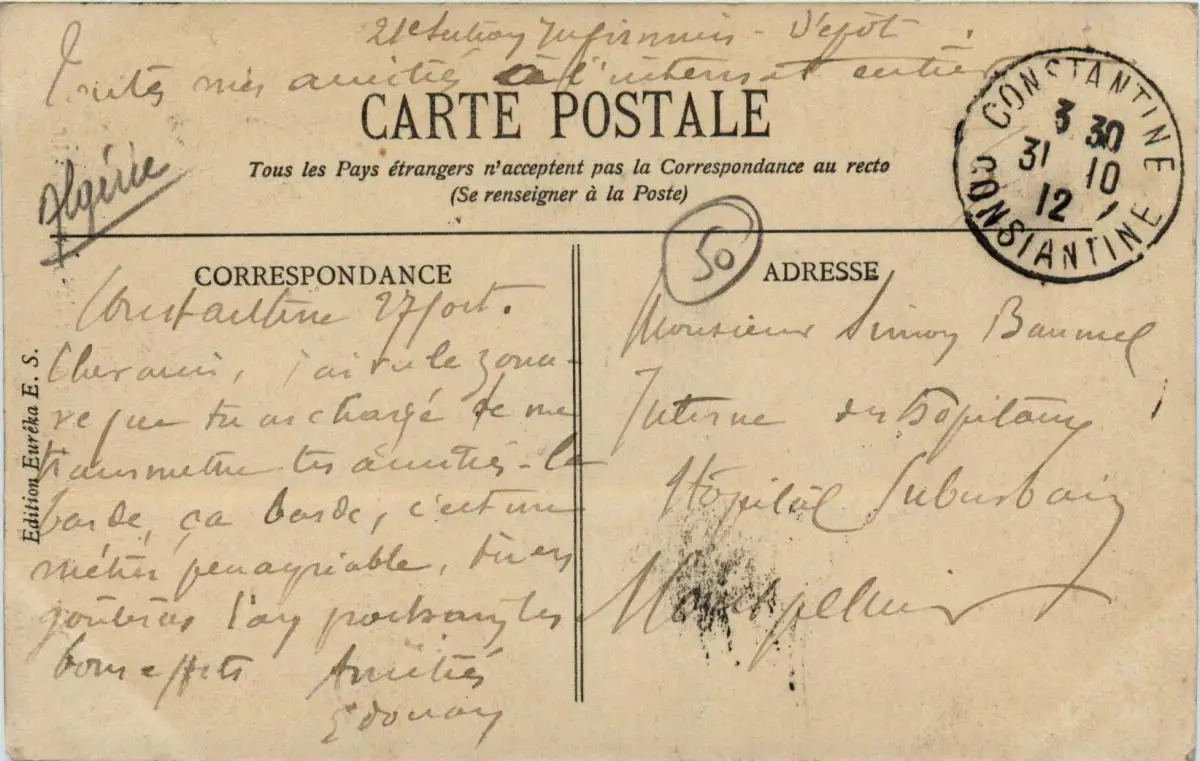 21e Section Infirmiers - Dépôt
Toutes mes amitiés à l'internat entier
CARTE POSTALE
Tous les Pays étrangers n'acceptent pas la Correspondance au recto
(Se renseigner à la Poste)
Algérie
CONSTANTINE
3 30
31 10
12
CONSTANTINE
50
CORRESPONDANCE
Constantine 27 oct.
Cher ami, j'ai vu le zoua-
ve que tu as chargé de me
transmettre tes amitiés - la
barde, ça barde, c'est un
métier peu agréable, tu en
goûteras l'an prochain les
bons effets Amitiés
Edouard
Edition Eurêka E. S.
ADRESSE
Monsieur Simon Baumel
Interne des hôpitaux
Hôpital Suburbain
Montpellier